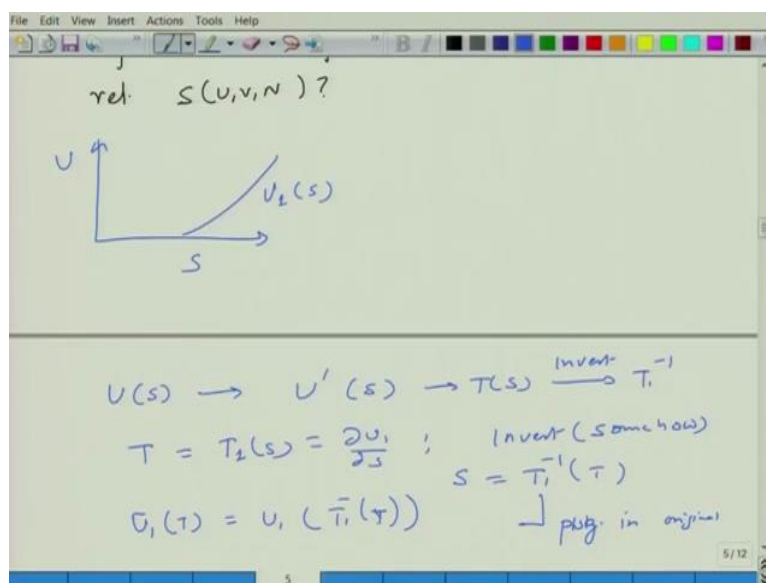 File Edit View Insert Actions Tools Help
rel. S(U,V,N)?
U
U₁(S)
S
U(S) → U'(S) → T(S) —Invert→ T₁⁻¹
T = T₁(S) = ∂U₁/∂S ; Invert (somehow)
S = T₁⁻¹(T)
Ū₁(T) = U₁(T₁⁻¹(T)) plug. in original
5/12
5